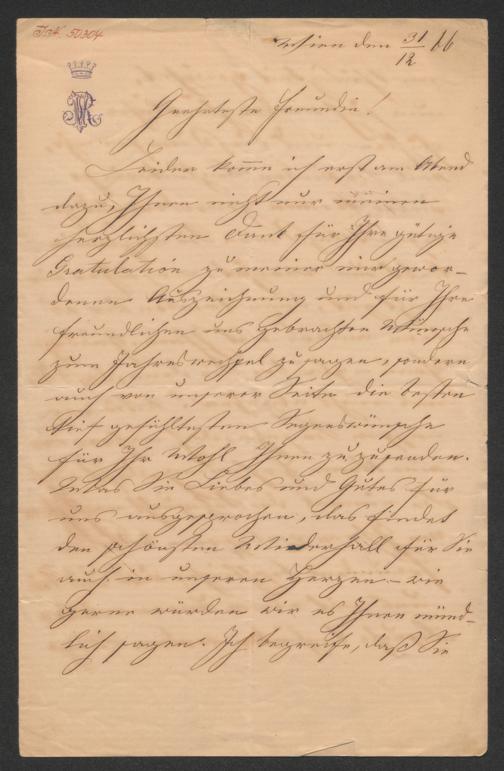 I.N. 50304
Wien den 31/12 66
Geehrteste Freundin!
Leider komme ich erst am Abend
dazu, Ihnen nicht nur meinen
herzlichsten Dank für Ihre gütige
Gratulation zu meiner mir gewor-
denen Auszeichnung und für Ihre
freundlichen uns gebrachten Wünsche
zum Jahreswechsel zu sagen, sondern
auch von unserer Seite die besten
tief gefühltesten Segenswünsche
für Ihr Wohl Ihnen zuzusenden.
Was Sie Liebes und Gutes für
uns ausgesprochen, das findet
den schönsten Wiederhall für Sie
auch in unseren Herzen – wie
gerne würden wir es Ihnen münd-
lich sagen. Ich begreife, daß Sie